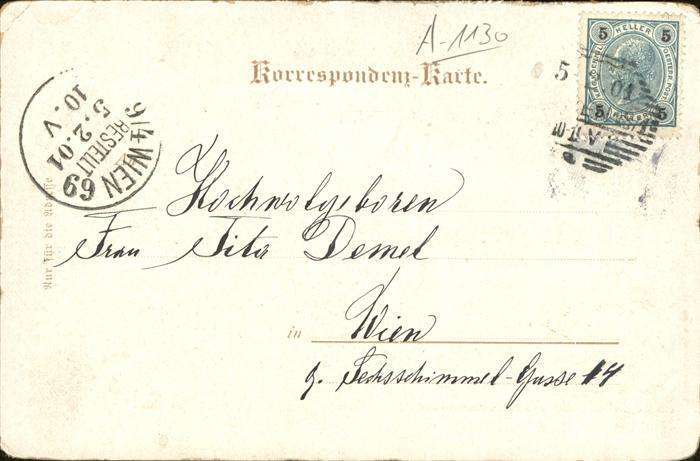 A-1130
5 HELLER 5
5 5
Korrespondenz-Karte.
5 01
10-11 V
9/4 WIEN 69
BESTELLT
5.2.01
10.V
Hochwolgeboren
Frau Tita Demel
Nur für die Adresse
in Wien
9. Sechsschimmel-Gasse #4